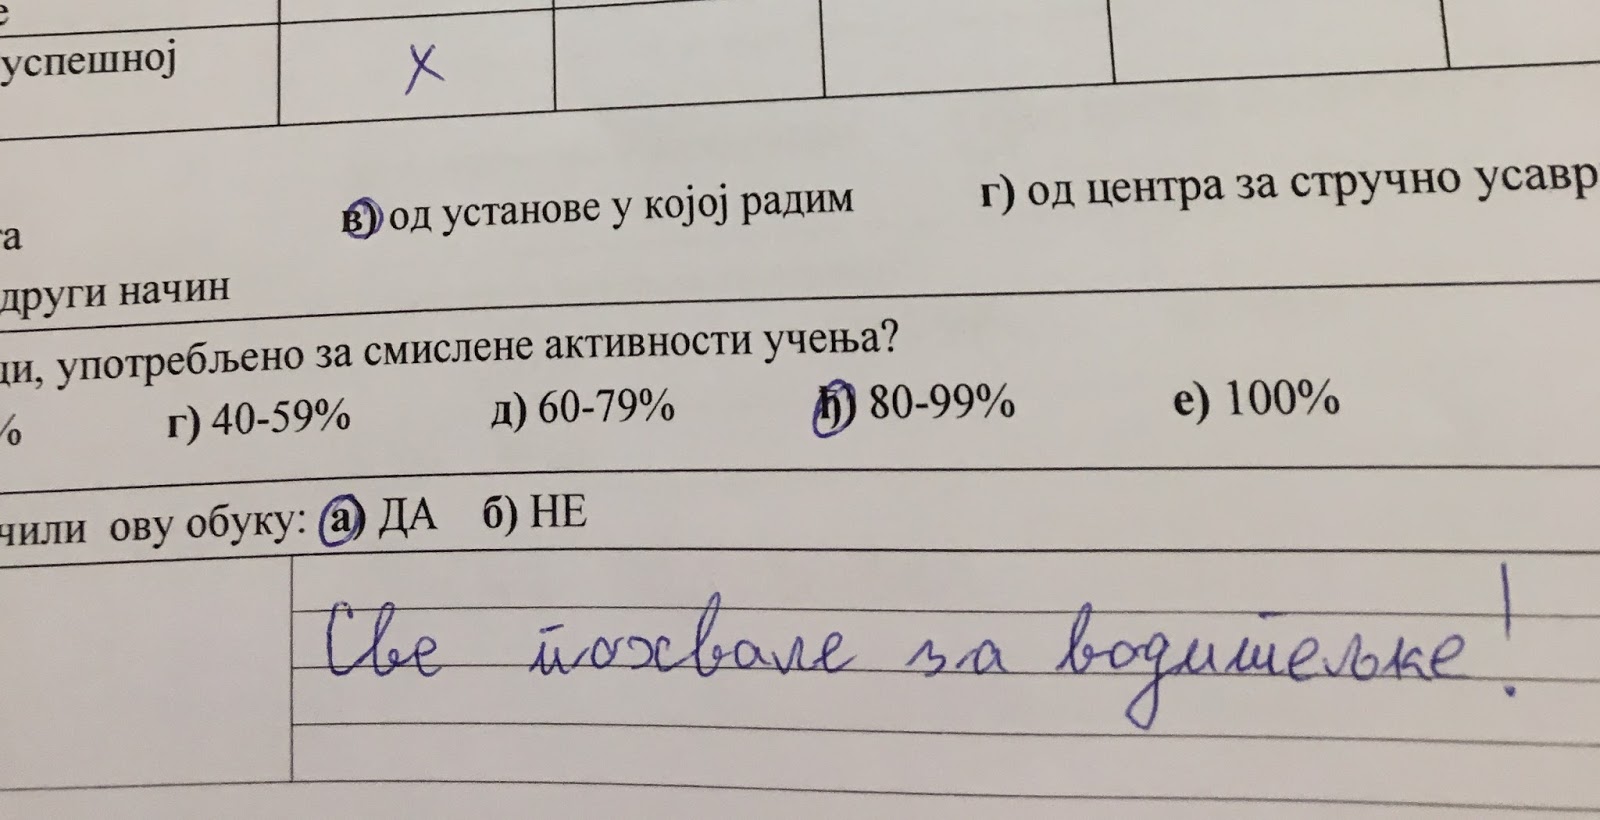 е
успешној X
в) од установе у којој радим г) од центра за стручно усавр
та
други начин
ци, употребљено за смислене активности учења?
% г) 40-59% д) 60-79% ђ) 80-99% е) 100%
чили ову обуку: а) ДА б) НЕ
Све похвале за водитељке!